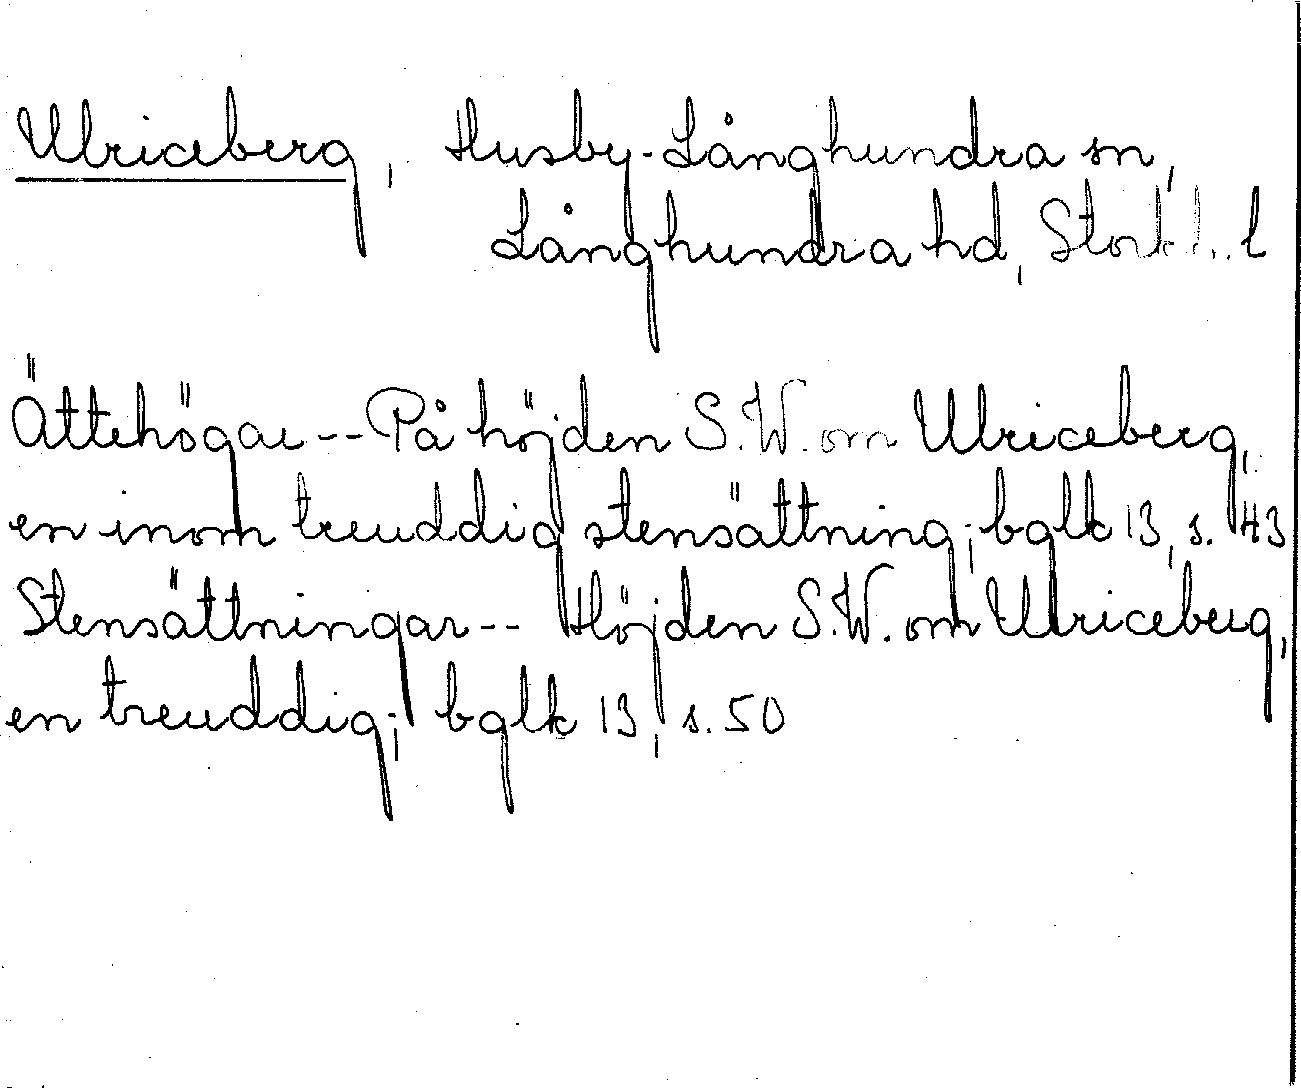 Ulriceberg, Husby-Långhundra sn,
Långhundra hd, Stockh. l
Ättehögar -- På höjden S.W. om Ulriceberg,
en inom treuddig stensättning; bglk 13, s. 43
Stensättningar -- Höjden S.W. om Ulriceberg,
en treuddig; bglk 13, s. 50